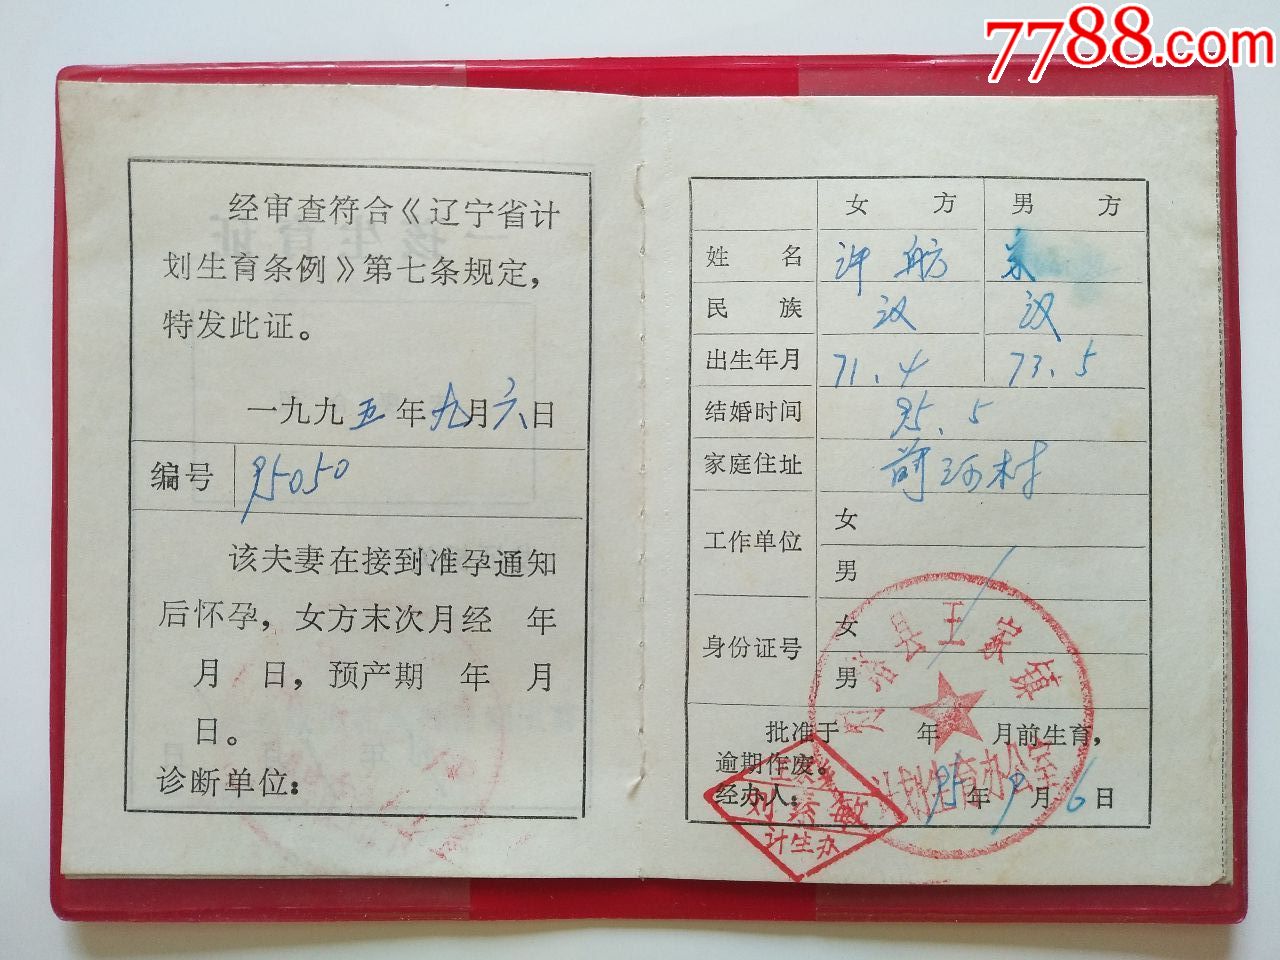 7788.com
经审查符合《辽宁省计
划生育条例》第七条规定，
特发此证。
一九九五年九月六日
编号 95050
该夫妻在接到准孕通知
后怀孕，女方末次月经 年
月 日，预产期 年 月
日。
诊断单位：
女方 男方
姓名 许
民族 汉 汉
出生年月 71.4 73.5
结婚时间 95.5
家庭住址 前河村
工作单位 女
男
身份证号 女
男
批准于 年 月前生育，
逾期作废。
经办人： 95年9月6日
县王家镇
计划生育办公室
刘 敏
计生办